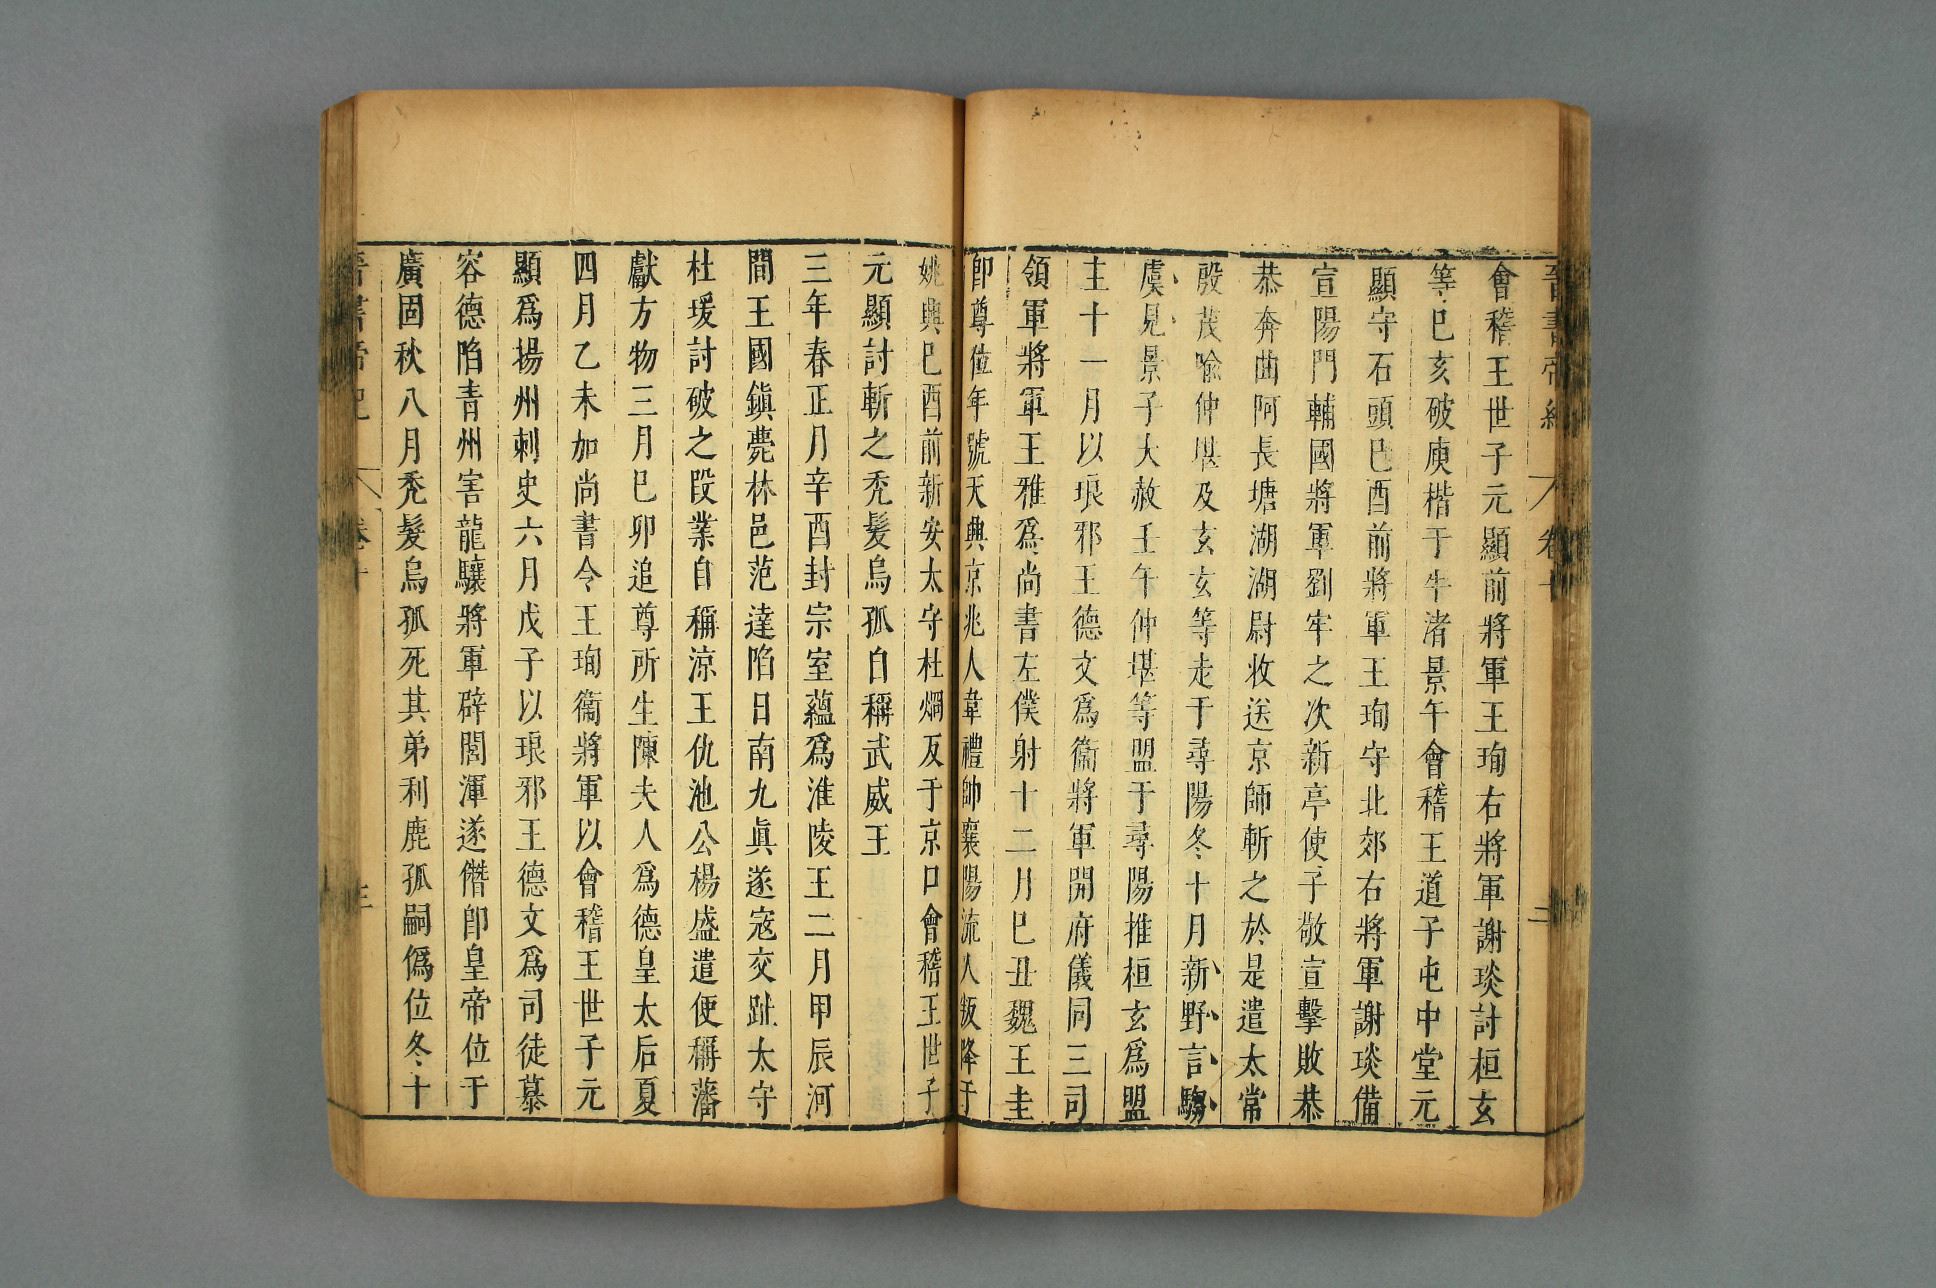 晉書帝紀 卷十 二
會稽王世子元顯前將軍王珣右將軍謝琰討桓玄
等己亥破庾楷于牛渚景午會稽王道子屯中堂元
顯守石頭己酉前將軍王珣守北郊右將軍謝琰備
宣陽門輔國將軍劉牢之次新亭使子敬宣擊敗恭
恭奔曲阿長塘湖湖尉收送京師斬之於是遣太常
殷茂喻仲堪及玄玄等走于尋陽冬十月新野言騶
虞見景子大赦壬午仲堪等盟于尋陽推桓玄爲盟
主十一月以琅邪王德文爲衞將軍開府儀同三司
領軍將軍王雅爲尚書左僕射十二月巳丑魏王圭
卽尊位年號天興京兆人韋禮帥襄陽流人叛降于
姚興巳酉前新安太守杜烱反于京口會稽王世子
元顯討斬之秃髮烏孤自稱武威王
三年春正月辛酉封宗室蘊爲淮陵王二月甲辰河
間王國鎭薨林邑范達陷日南九眞遂寇交趾太守
杜瑗討破之段業自稱涼王仇池公楊盛遣使稱藩
獻方物三月巳卯追尊所生陳夫人爲德皇太后夏
四月乙未加尚書令王珣衞將軍以會稽王世子元
顯爲揚州刺史六月戊子以琅邪王德文爲司徒慕
容德陷青州害龍驤將軍辟閭渾遂僭卽皇帝位于
廣固秋八月秃髮烏孤死其弟利鹿孤嗣僞位冬十
晉書帝紀 卷十 三